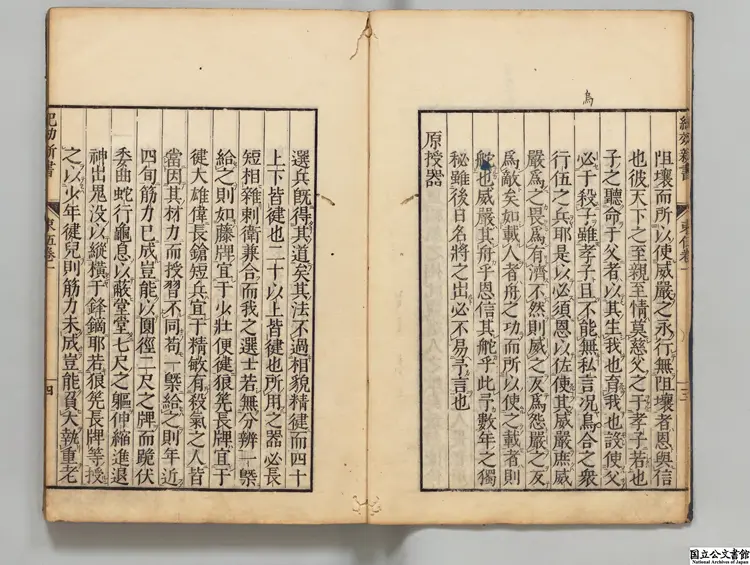 紀效新書
束伍卷一
烏
阻壞而所以使威嚴之永行無阻壞者恩與信
也彼天下之至親至情莫慈父之于孝子若也
子之聽命于父者以其生我也育我也設使父
必于殺子雖孝子且不能無私言況烏合之衆
行伍之兵耶是以必須恩以佐使其威嚴庶威
嚴爲之畏爲有濟不然則威之反爲怨嚴之反
爲敵矣如載人者舟之功而所以使之載者則
舵也威嚴其舟乎恩信其舵乎此予數年之獨
秘雖後日名將之出必不易予言也
原授器
選兵旣得其道矣其法不過相貌精徤而四十
上下皆徤也二十以上皆徤也所用之器必長
短相雜刺衛兼合而我之選士若無分辨一槩
給之則如藤牌宜于少壯便徤狼筅長牌宜于
徤大雄偉長鎗短兵宜于精敏有殺氣之人皆
當因其材力而授習不同苟一槩給之則年近
四旬筋力已成豈能以圓徑二尺之牌而跪伏
委曲蛇行龜息以蔽堂堂七尺之軀伸縮進退
神出鬼没以縱橫于鋒鏑耶若狼筅長牌等授
之以少年徤兒則筋力未成豈能負大執重老
紀効新書
束伍卷一
四
国立公文書館
National Archives of Japan